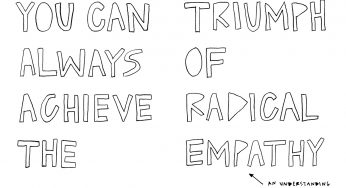 YOU CAN
ALWAYS
ACHIEVE
THE
TRIUMPH
OF
RADICAL
EMPATHY
AN UNDERSTANDING